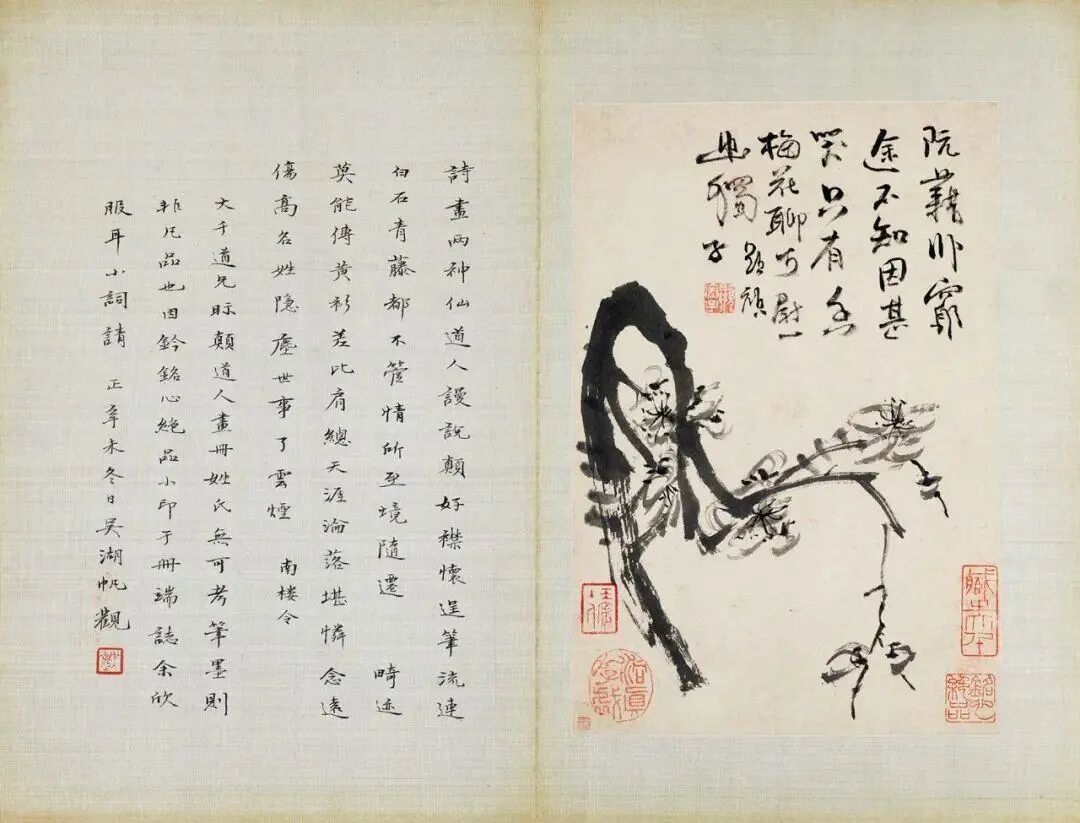 阮藉卧窮
途不知因甚
哭只有
梅花聊可慰
幽獨
銘心絕品
詩畫兩神仙道人謾說顛好襟懷逞筆流連
白石青藤都不管情所至境隨遷 畸迹
莫能傳黃衫差比肩總天涯淪落堪憐念遠
傷高名姓隱塵世事了雲煙 南楼令
大千道兄眎顛道人畫冊姓氏無可考筆墨則
非凡品也因鈐銘心絕品小印于冊端誌余欣
服耳小詞請 正辛未冬日吳湖帆觀